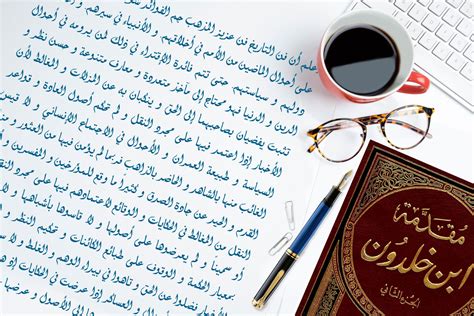 علم أن فن التاريخ فن عزيز المذهب جم الفوائد
على أحوال الماضين من الأمم في أخلاقهم و الأنبياء في سيرهم و
دولهم و سياستهم حتى تتم فائدة الاقتداء في ذلك لمن يرومه في أحوال
الدين و الدنيا فهو محتاج إلى مآخذ متعددة و معارف متنوعة و حسن نظر و
تثبت يفضيان بصاحبهما إلى الحق و ينكبان به عن المزلات و المغالط لأن
الأخبار إذا اعتمد فيها على مجرد النقل و لم تحكم أصول العادة و قواعد
السياسة و طبيعة العمران و الأحوال في الاجتماع الإنساني و لا
الغائب منها بالشاهد و الحاضر بالذاهب فربما لم يؤمن فيها من العثور و
القدم و الحيد عن جادة الصدق و كثيراً ما وقع للمؤرخين و المفسرين و
النقل من المغالط في الحكايات و الوقائع لاعتمادهم فيها على مجرد النقل
أو سميناً و لم يعرضوها على أصولها و لا قاسوها بأشباهها و
بمعيار الحكمة و الوقوف على طبائع الكائنات و تحكيم النظر و
الأخبار فضلوا عن الحق و تاهوا في بيداء الوهم و الغلط و
و العساكر إذا عرضت في الحكايات
إلى الأصول و عرضها
مقدمة
ابن خلدون
الجزء الثاني